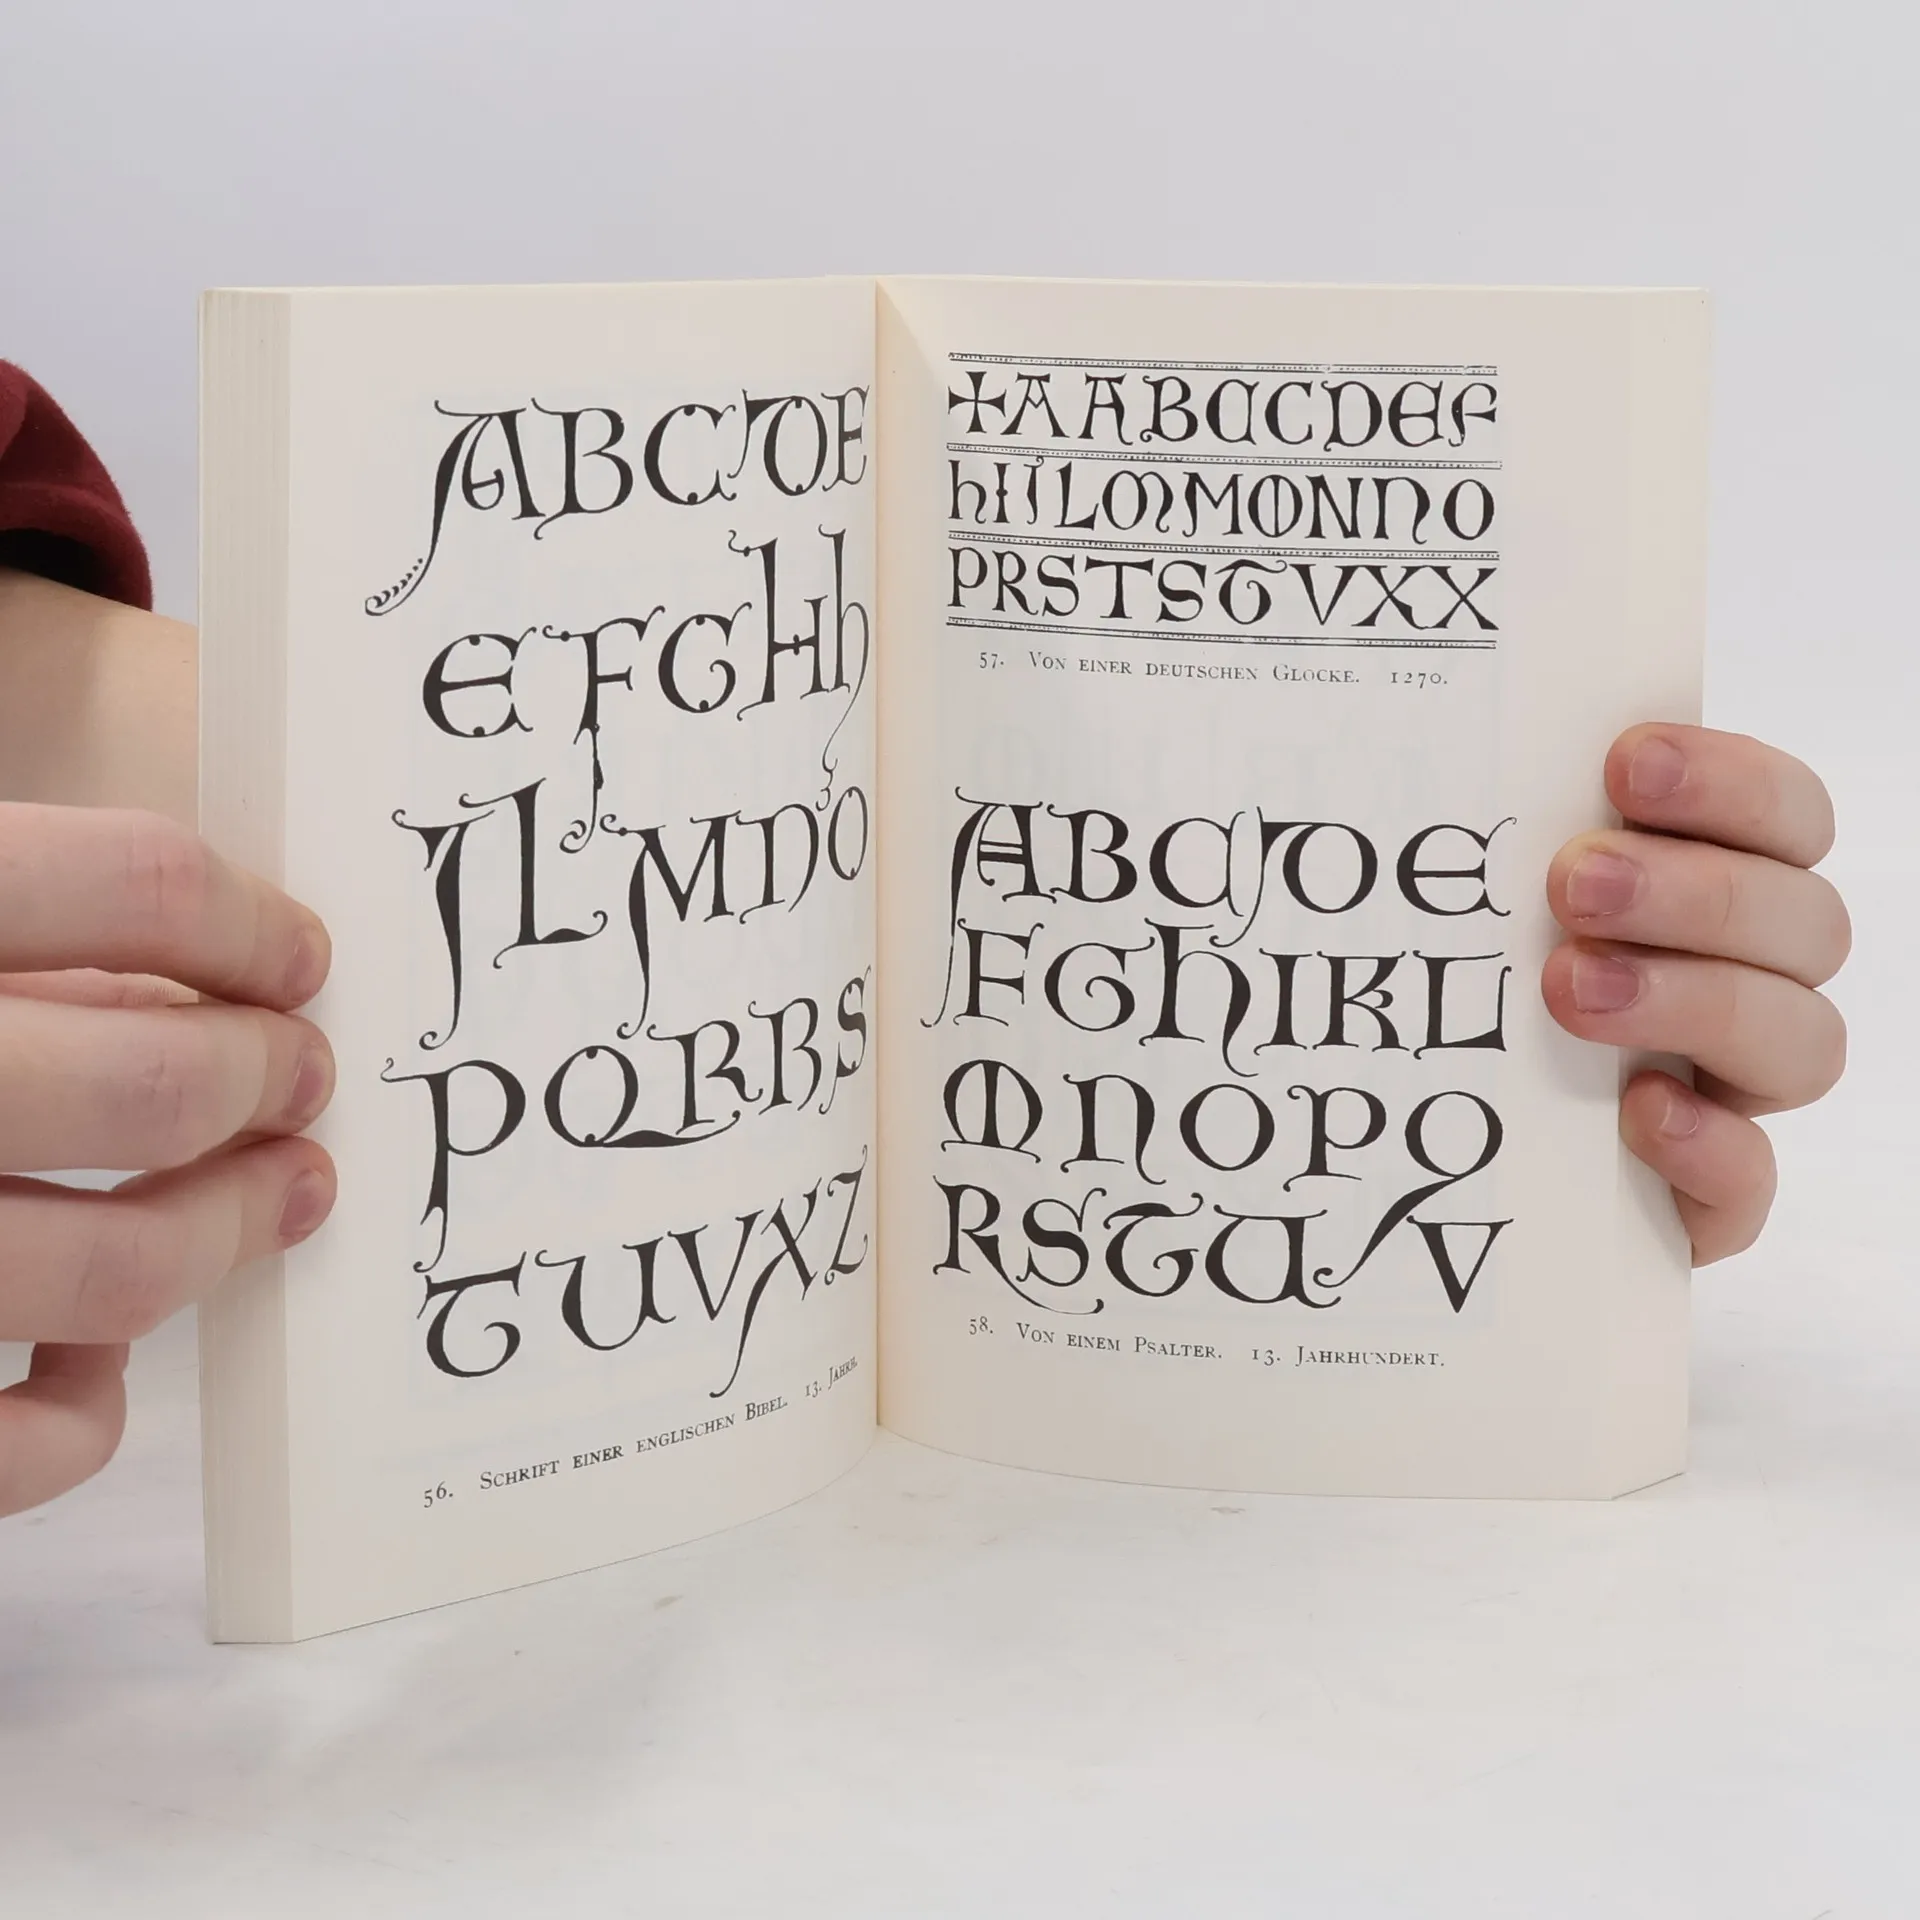 ABCDE
EFGHh
ILMNO
PQRRS
TUVXZ
56. Schrift einer englischen Bibel. 13. Jahrh.
+AABCCDEF
hIILMMONNO
PRSTSTVXX
57. Von einer deutschen Glocke. 1270.
ABCDE
FGhIKL
MNOPQ
RSTUV
58. Von einem Psalter. 13. Jahrhundert.